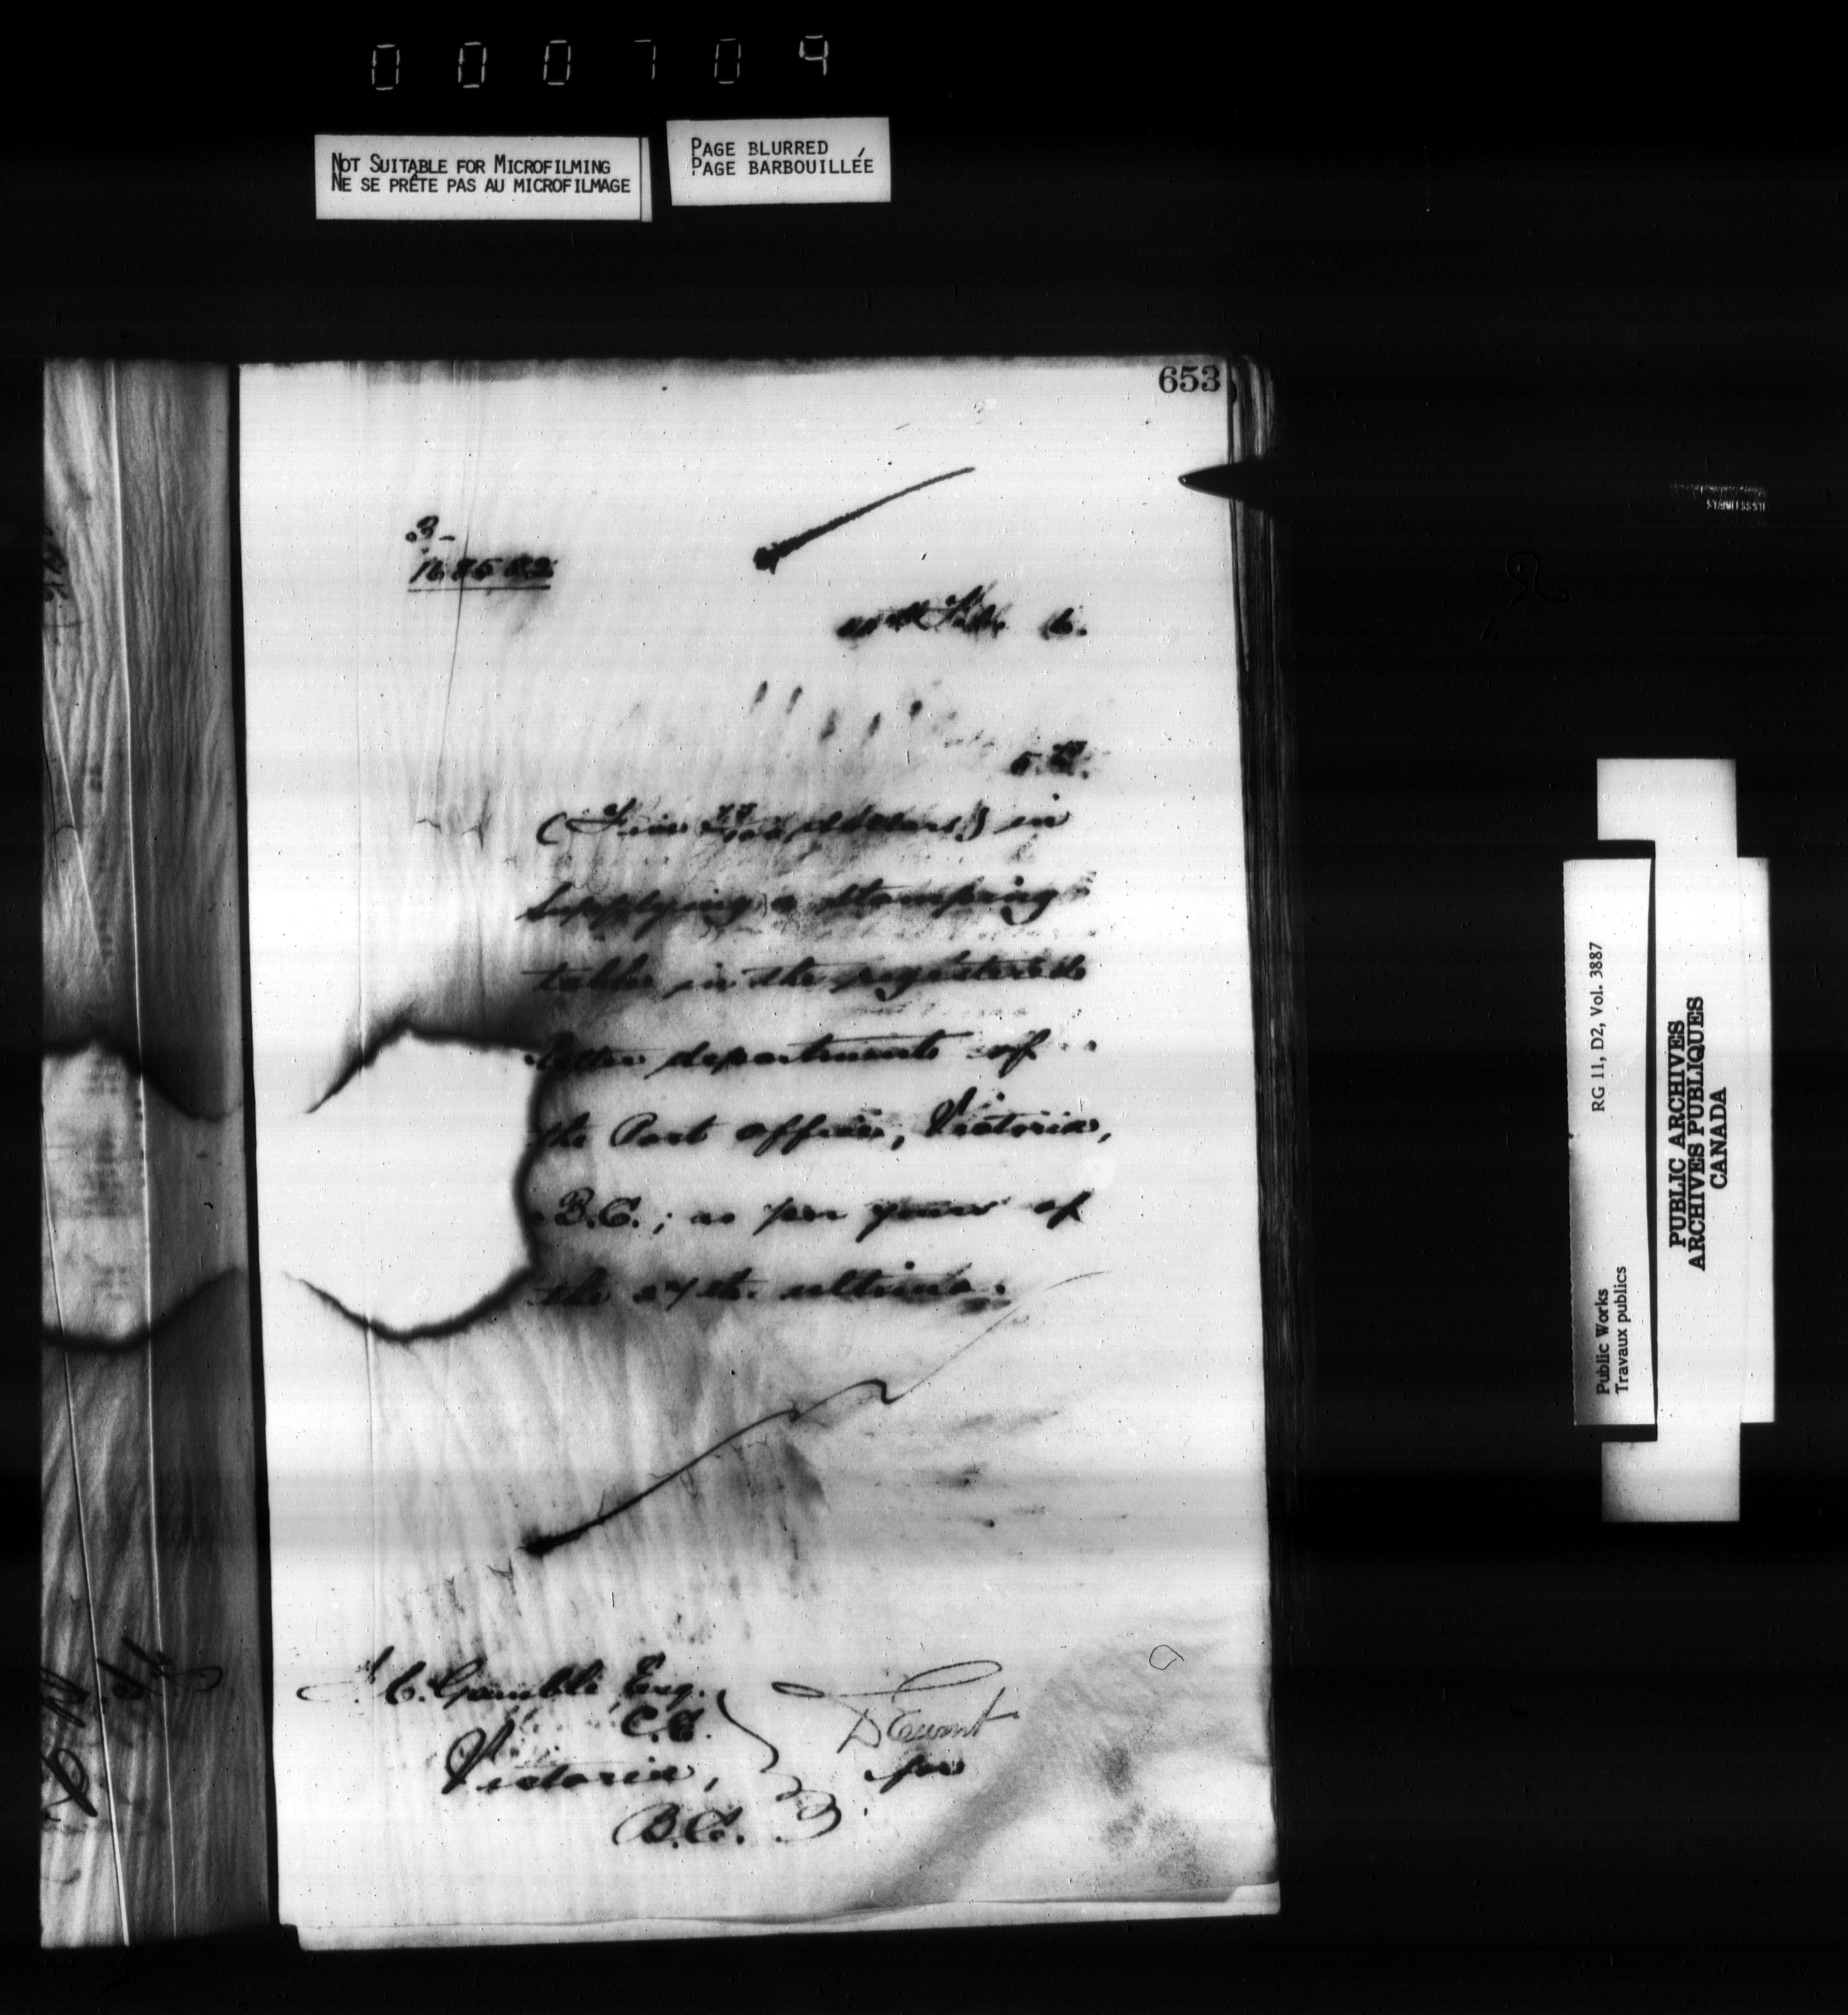 000704
NOT SUITABLE FOR MICROFILMING
NE SE PRÊTE PAS AU MICROFILMAGE
PAGE BLURRED
PAGE BARBOUILLÉE
653
3-
Feb. 6.
dollars) in
supplying a stamping
table in the registered
letter department of
the Post office, Victoria,
B.C.; as per yours of
the 27th. ultimo.
J. C. Gamble Esq.
C.E.
Victoria,
B.C.
for
RG 11, D2, Vol. 3887
Public Works
Travaux publics
PUBLIC ARCHIVES
ARCHIVES PUBLIQUES
CANADA